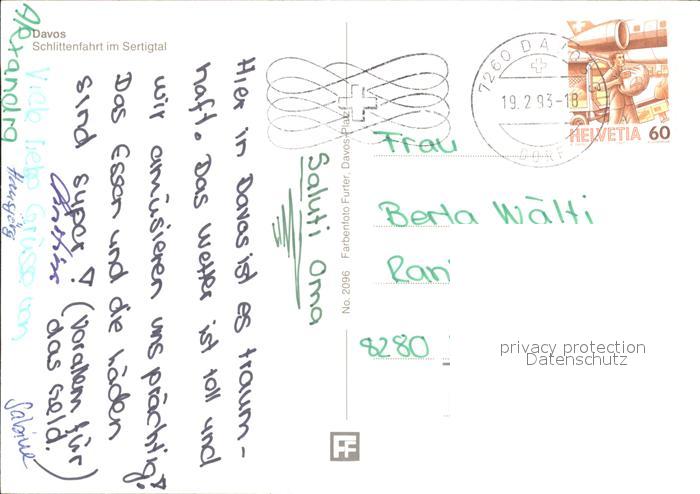 Davos
Schlittenfahrt im Sertigtal
Saluti Oma
Hier in Davos ist es traum-
haft. Das Wetter ist toll und
wir amüsieren uns prächtig!
Das Essen und die Läden
sind super! (Vorallem für
das Geld.)
Viele liebe Grüsse von
Alexandra
Hansjörg
Sabine
No. 2096 Farbenfoto Furter, Davos-Platz
7260 DAVOS
19.2.93-18
DORF
HELVETIA 60
Frau
Berta Wälti
8280
privacy protection
Datenschutz